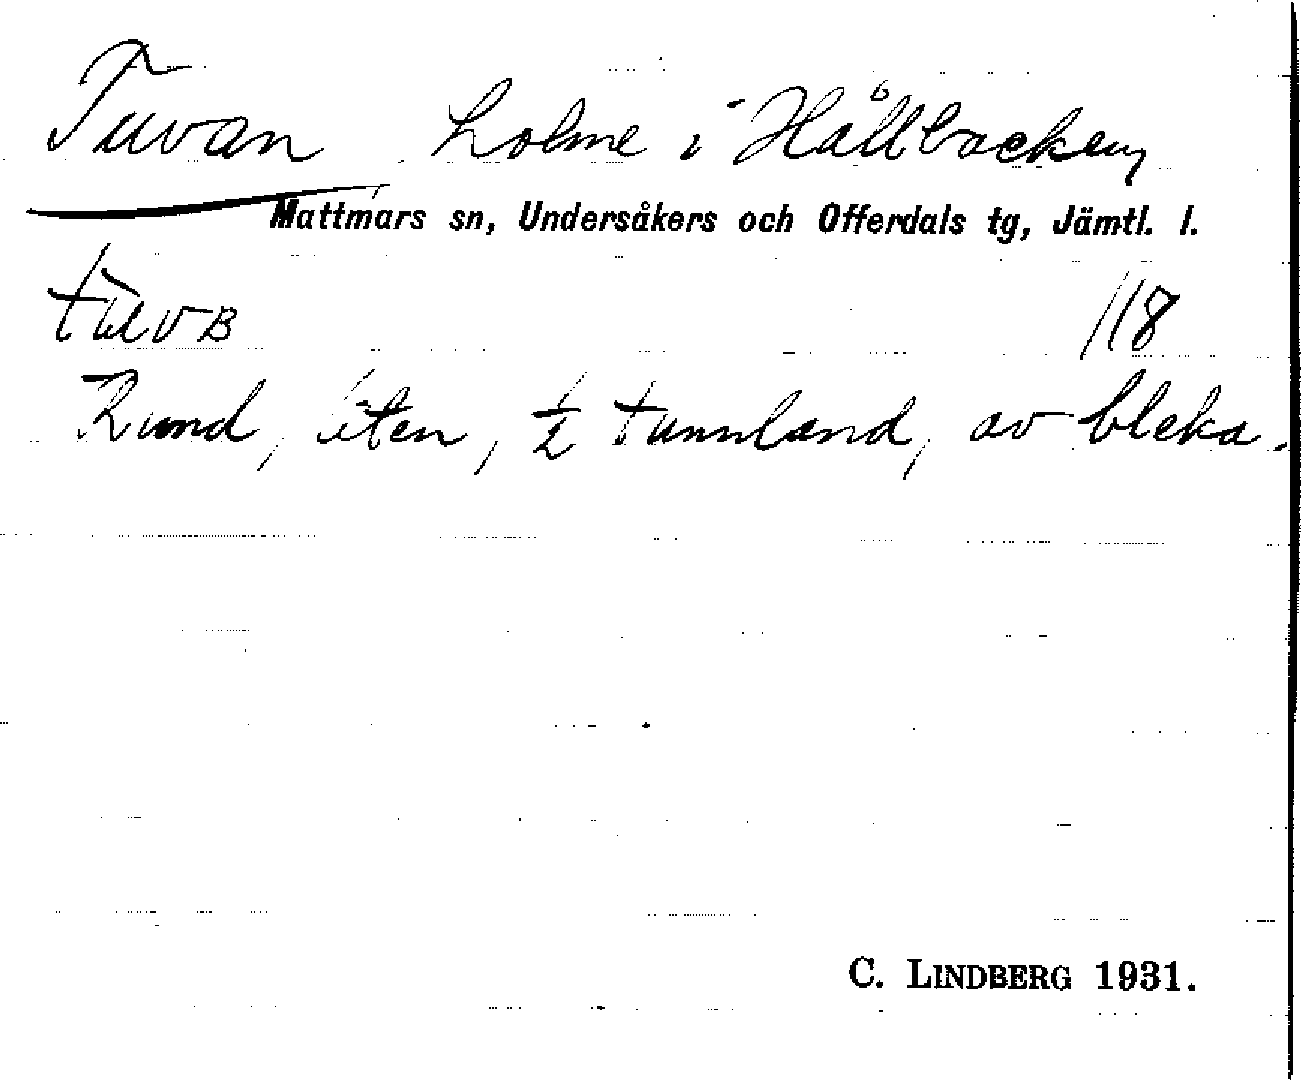 Tuvan holme i Hållbacken,
Mattmars sn, Undersåkers och Offerdals tg, Jämtl. l.
tùvʙ 118
Rund, liten, ½ tunnland, av bleka.
C. LINDBERG 1931.